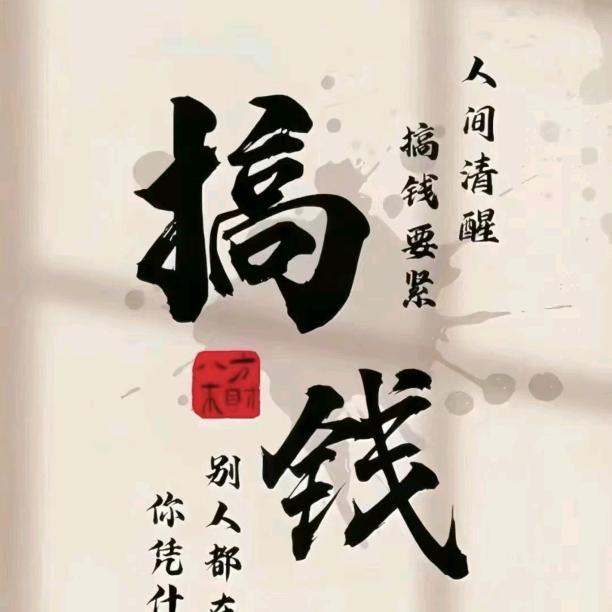 人间清醒
搞钱要紧
搞钱
别人都在
你凭什